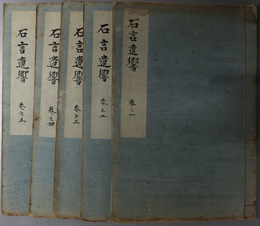 石言遺響 巻之一
石言遺響 巻之二
石言遺響 巻之三
石言遺響 巻之四
石言遺響 巻之五